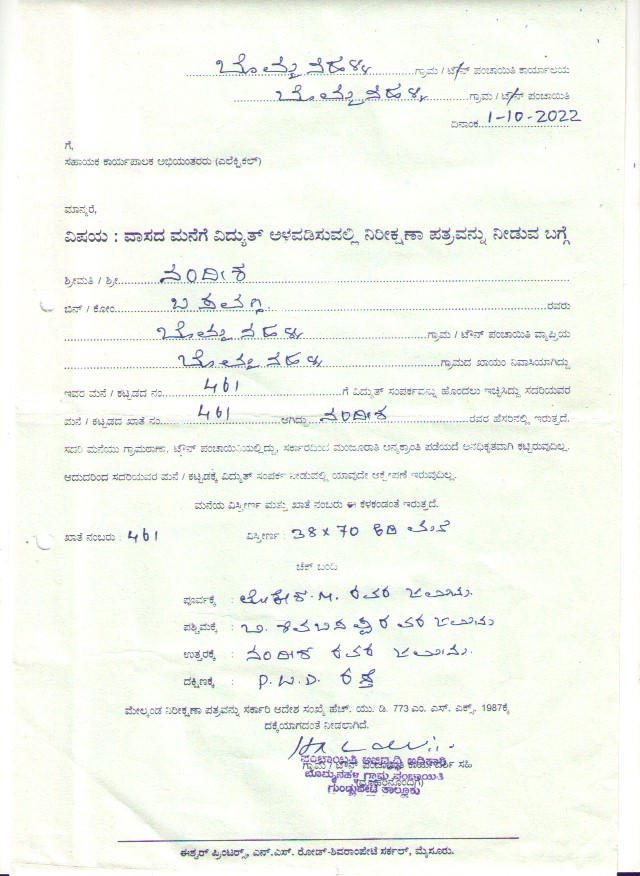 ಬೊಮ್ಮನಹಳ್ಳಿ ಗ್ರಾಮ / ಟೌನ್ ಪಂಚಾಯಿತಿ ಕಾರ್ಯಾಲಯ
ಬೊಮ್ಮನಹಳ್ಳಿ ಗ್ರಾಮ / ಟೌನ್ ಪಂಚಾಯಿತಿ
ದಿನಾಂಕ 1-10-2022
ಗೆ,
ಸಹಾಯಕ ಕಾರ್ಯಪಾಲಕ ಅಭಿಯಂತರರು (ಎಲೆಕ್ಟ್ರಿಕಲ್)
ಮಾನ್ಯರೆ,
ವಿಷಯ : ವಾಸದ ಮನೆಗೆ ವಿದ್ಯುತ್ ಅಳವಡಿಸುವಲ್ಲಿ ನಿರೀಕ್ಷಣಾ ಪತ್ರವನ್ನು ನೀಡುವ ಬಗ್ಗೆ
ಶ್ರೀಮತಿ / ಶ್ರೀ ನಂದೀಶ
ಬಿನ್ / ಕೋಂ ಬಸವಣ್ಣ ರವರು
ಬೊಮ್ಮನಹಳ್ಳಿ ಗ್ರಾಮ / ಟೌನ್ ಪಂಚಾಯಿತಿ ವ್ಯಾಪ್ತಿಯ
ಬೊಮ್ಮನಹಳ್ಳಿ ಗ್ರಾಮದ ಖಾಯಂ ನಿವಾಸಿಯಾಗಿದ್ದು
ಇವರ ಮನೆ / ಕಟ್ಟಡದ ನಂ 461 ಗೆ ವಿದ್ಯುತ್ ಸಂಪರ್ಕವನ್ನು ಹೊಂದಲು ಇಚ್ಛಿಸಿದ್ದು ಸದರಿಯವರ
ಮನೆ / ಕಟ್ಟಡದ ಖಾತೆ ನಂ. 461 ಆಗಿದ್ದು ನಂದೀಶ ರವರ ಹೆಸರಿನಲ್ಲಿ ಇರುತ್ತದೆ.
ಸದರಿ ಮನೆಯು ಗ್ರಾಮಠಾಣಾ, ಟೌನ್ ಪಂಚಾಯಿತಿಯಲ್ಲಿದ್ದು, ಸರ್ಕಾರದಿಂದ ಮಂಜೂರಾತಿ ಅನ್ಯಕ್ರಾಂತಿ ಪಡೆಯದೆ ಅನಧಿಕೃತವಾಗಿ ಕಟ್ಟಿರುವುದಿಲ್ಲ.
ಆದುದರಿಂದ ಸದರಿಯವರ ಮನೆ / ಕಟ್ಟಡಕ್ಕೆ ವಿದ್ಯುತ್ ಸಂಪರ್ಕ ನೀಡುವಲ್ಲಿ ಯಾವುದೇ ಆಕ್ಷೇಪಣೆ ಇರುವುದಿಲ್ಲ.
ಮನೆಯ ವಿಸ್ತೀರ್ಣ ಮತ್ತು ಖಾತೆ ನಂಬರು ಈ ಕೆಳಕಂಡಂತೆ ಇರುತ್ತದೆ.
ಖಾತೆ ನಂಬರು : 461 ವಿಸ್ತೀರ್ಣ : 38x70 ಅಡಿ ಮನೆ
ಚೆಕ್ ಬಂದಿ
ಪೂರ್ವಕ್ಕೆ : ಲೋಕೇಶ.M. ರವರ ಜಮೀನು.
ಪಶ್ಚಿಮಕ್ಕೆ : ಬಿ. ಶಿವಬಸಪ್ಪ ರವರ ಜಮೀನು
ಉತ್ತರಕ್ಕೆ : ನಂದೀಶ ರವರ ಜಮೀನು.
ದಕ್ಷಿಣಕ್ಕೆ : P.W.D. ರಸ್ತೆ
ಮೇಲ್ಕಂಡ ನಿರೀಕ್ಷಣಾ ಪತ್ರವನ್ನು ಸರ್ಕಾರಿ ಆದೇಶ ಸಂಖ್ಯೆ ಹೆಚ್. ಯು. ಡಿ. 773 ಎಂ. ಎಸ್. ಎಕ್ಸ್. 1987ಕ್ಕೆ
ದಕ್ಕೆಯಾಗದಂತೆ ನೀಡಲಾಗಿದೆ.
ಪಂಚಾಯ್ತಿ ಅಭಿವೃದ್ಧಿ ಅಧಿಕಾರಿ
ಗ್ರಾಮ / ಟೌನ್ ಪಂಚಾಯಿತಿ ಕಾರ್ಯದರ್ಶಿ ಸಹಿ
ಬೊಮ್ಮನಹಳ್ಳಿ ಗ್ರಾಮ ಪಂಚಾಯಿತಿ
ಗುಂಡ್ಲುಪೇಟೆ ತಾಲ್ಲೂಕು
ಈಶ್ವರ್ ಪ್ರಿಂಟರ್ಸ್, ಎನ್.ಎಸ್. ರೋಡ್-ಶಿವರಾಂಪೇಟೆ ಸರ್ಕಲ್, ಮೈಸೂರು.